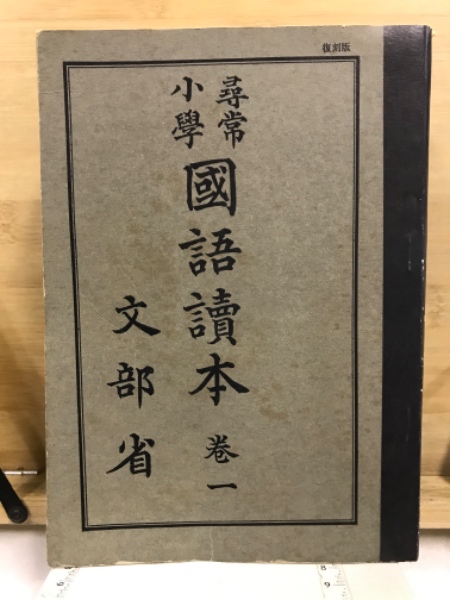 復刻版
尋常
小學
國語讀本 卷一
文部省
8
9